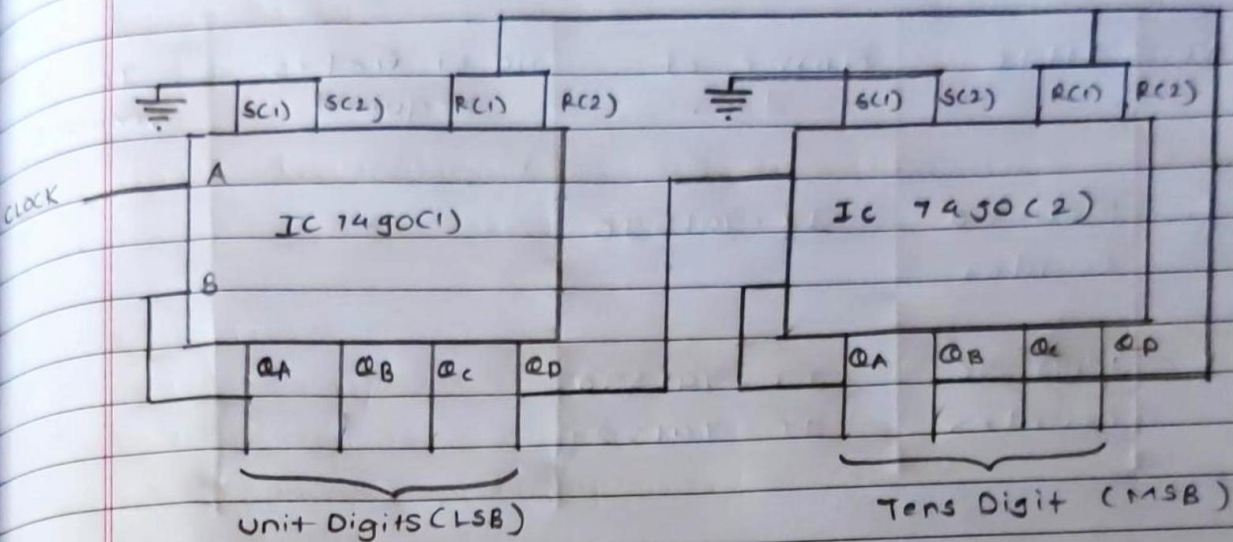 S(1) S(2) R(1) R(2) S(1) S(2) R(1) R(2)
A
CLOCK
IC 7490(1) IC 7490(2)
B
QA QB QC QD QA QB QC QD
Unit Digits (LSB) Tens Digit (MSB)